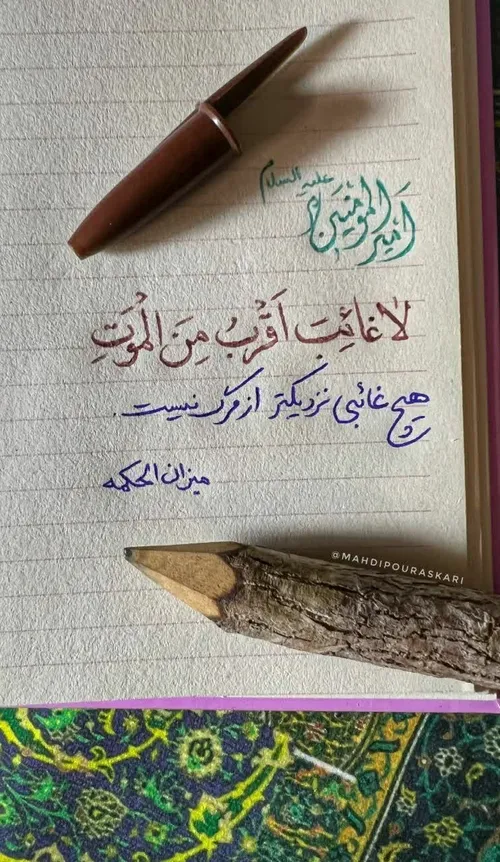 امیرالمؤمنین ع
علیه السلام
لا غائِبَ اَقْرَبُ مِنَ الْمَوْتِ
هیچ غائبی نزدیکتر از مرگ نیست.
میزان الحکمه
@MAHDIPOURASKARI